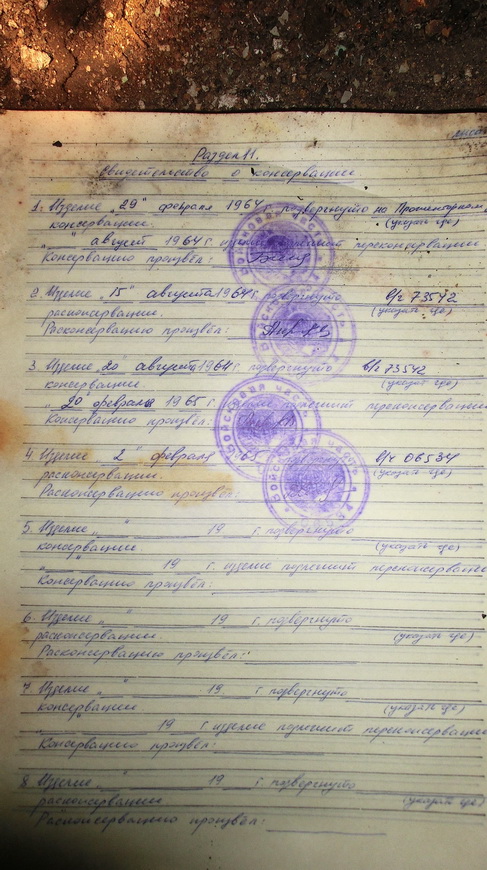 Раздел 11.
Свидетельство о консервации
1. Изделие „29" февраля 1964 подвергнуто на
консервации. (указать где)
„ " август 1964 г. изделие подлежит переконсервации
Консервацию произвёл:
2. Изделие „15" августа 1964 г. подвергнуто в/ч 73542
расконсервации. (указать где)
Расконсервацию произвёл:
3. Изделие „20" августа 1964 г. подвергнуто в/ч 73542
консервации (указать где)
„20" февраля 1965 г. изделие подлежит переконсервации
Консервацию произвёл:
4. Изделие „2" февраля 65 в/ч 06534
расконсервации. (указать где)
Расконсервацию произвёл:
5. Изделие „ " 19 г. подвергнуто
консервации. (указать где)
„ " 19 г. изделие подлежит переконсервации
Консервацию произвёл:
6. Изделие „ " 19 г. подвергнуто
расконсервации. (указать где)
Расконсервацию произвёл:
7. Изделие „ " 19 г. подвергнуто
консервации. (указать где)
„ " 19 г. изделие подлежит переконсервации
Консервацию произвёл:
8. Изделие „ " 19 г. подвергнуто
расконсервации (указать где)
Расконсервацию произвёл: